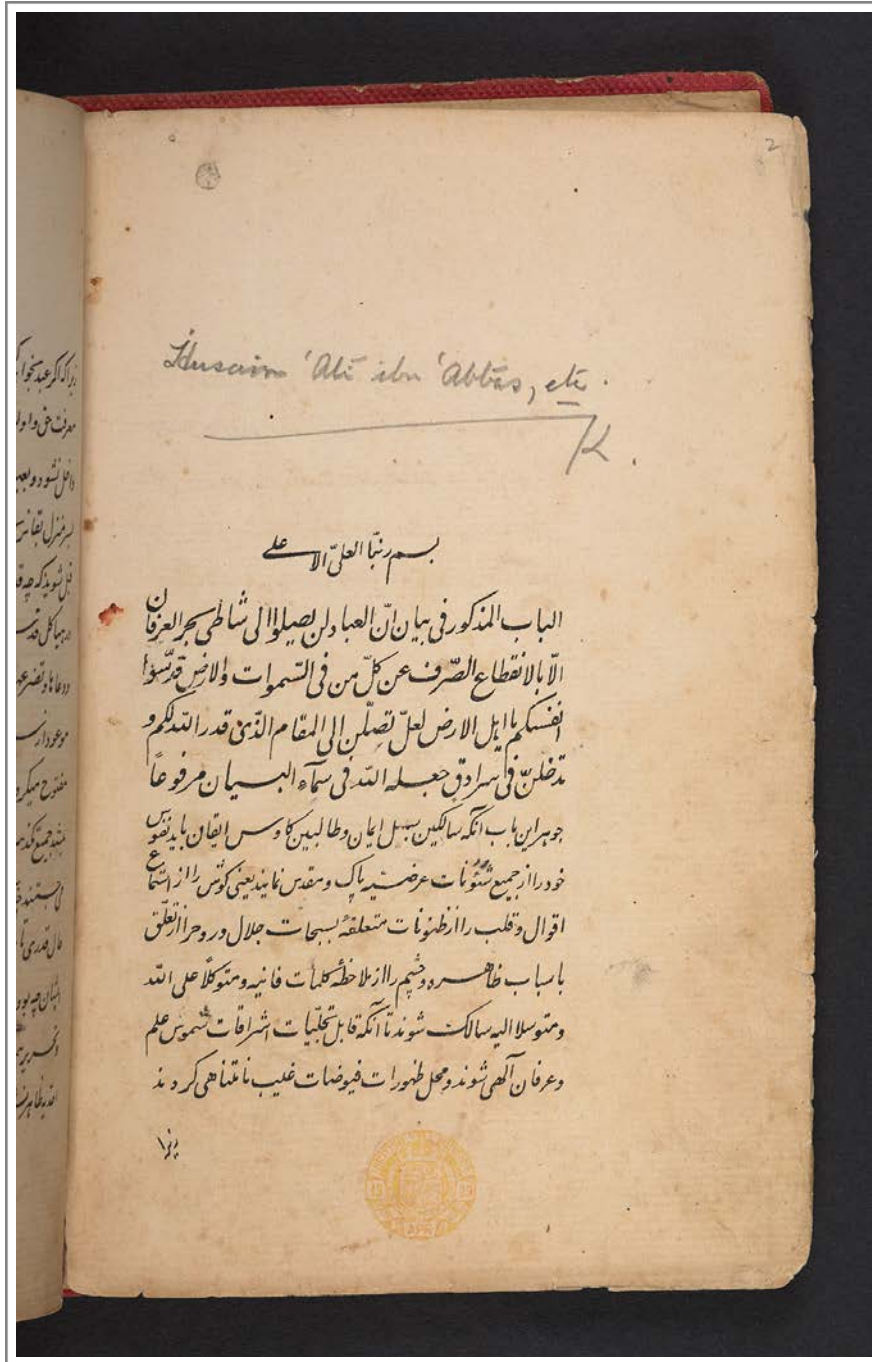 2
Husain 'Ali ibn 'Abbas, etc.
K.
بسم ربنا العلیّ الاعلی
الباب المذکور فی بیان انّ العباد لن یصلوا الی شاطی بحر العرفان
الّا بالانقطاع الصّرف عن کلّ من فی السّموات والارض قدّسوا
انفسکم یا اهل الارض لعلّ تصلنّ الی المقام الّذی قدر الله لکم و
تدخلنّ فی سرادق جعله الله فی سمآء البیان مرفوعاً
جوهر این باب آنکه سالکین سبیل ایمان و طالبین کاوس ایقان باید نفوس
خود را از جمیع شئونات عرضیه پاک و مقدس نمایند یعنی گوش را از استماع
اقوال و قلب را از ظنونات متعلقهٔ بسبحات جلال و روح را از تعلّق
باسباب ظاهره و چشم را از ملاحظهٔ کلمات فانیه و متوکلاً علی الله
و متوسلا الیه سالک شوند تا آنکه قابل تجلّیات اشراقات شموس علم
و عرفان آلهی شوند و محل ظهورات فیوضات غیب نامتناهی گردند
زیرا
زیرا که اگر عبد بخواهد
معرفت حق و اولیا
داخل نشود و بعین
بسر منزل بقا نرسد
قبل شوید که چه قدر
موعود از
مفتوح میگردد